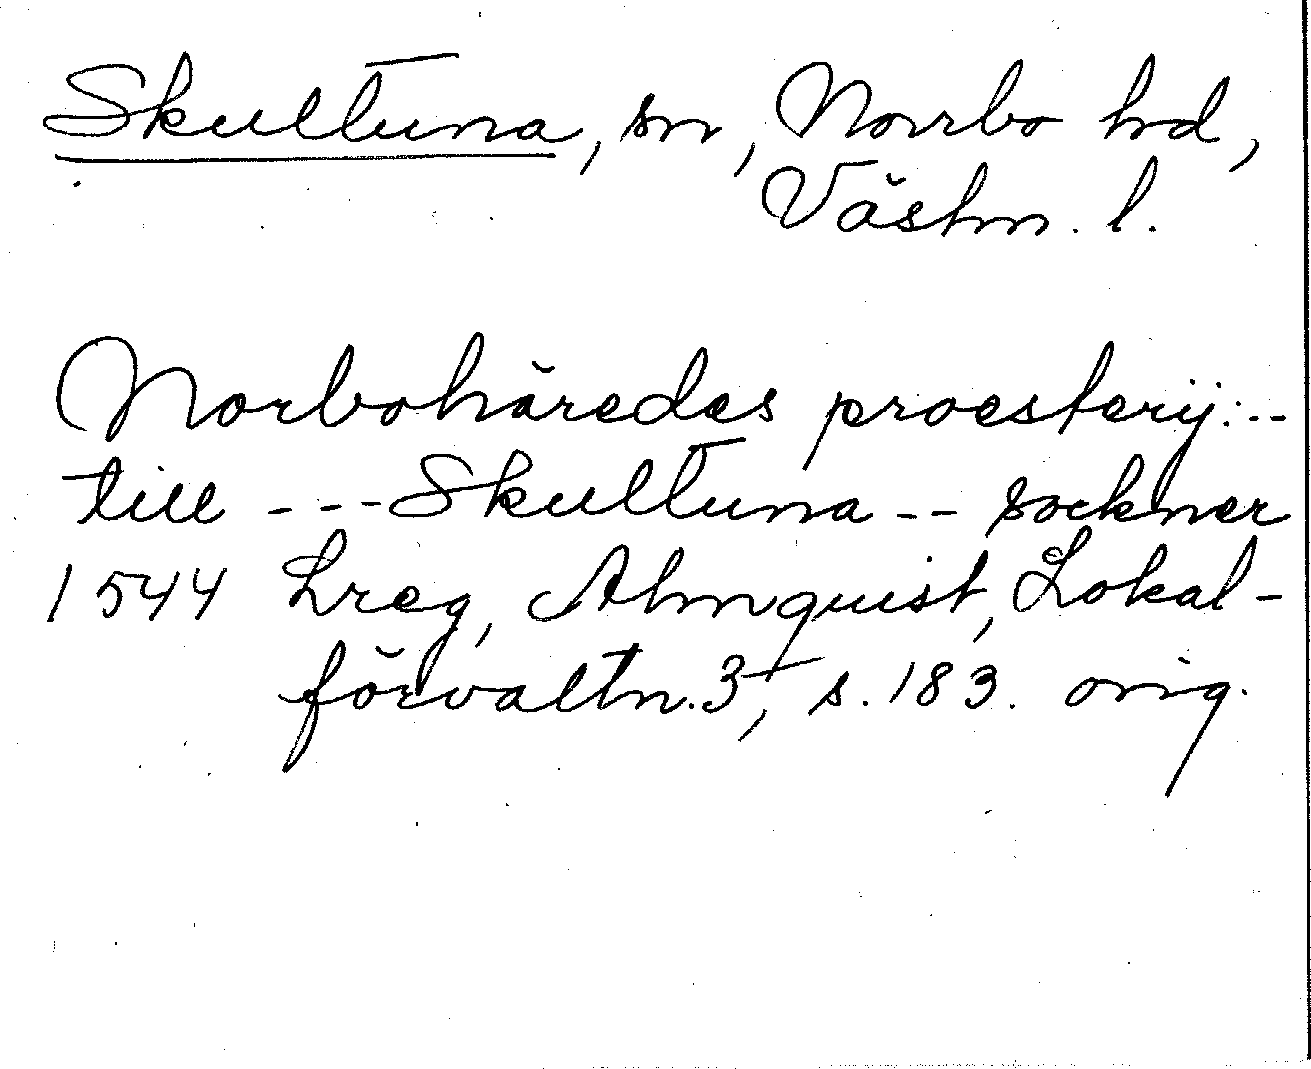 Skultuna, sn, Norrbo hd,
Västm. l.
Norbohäredes proesterij:--
till ---Skultuna -- sockner
1544 Lreg, Almquist, Lokal-
förvaltn. 3, s. 183. orig.